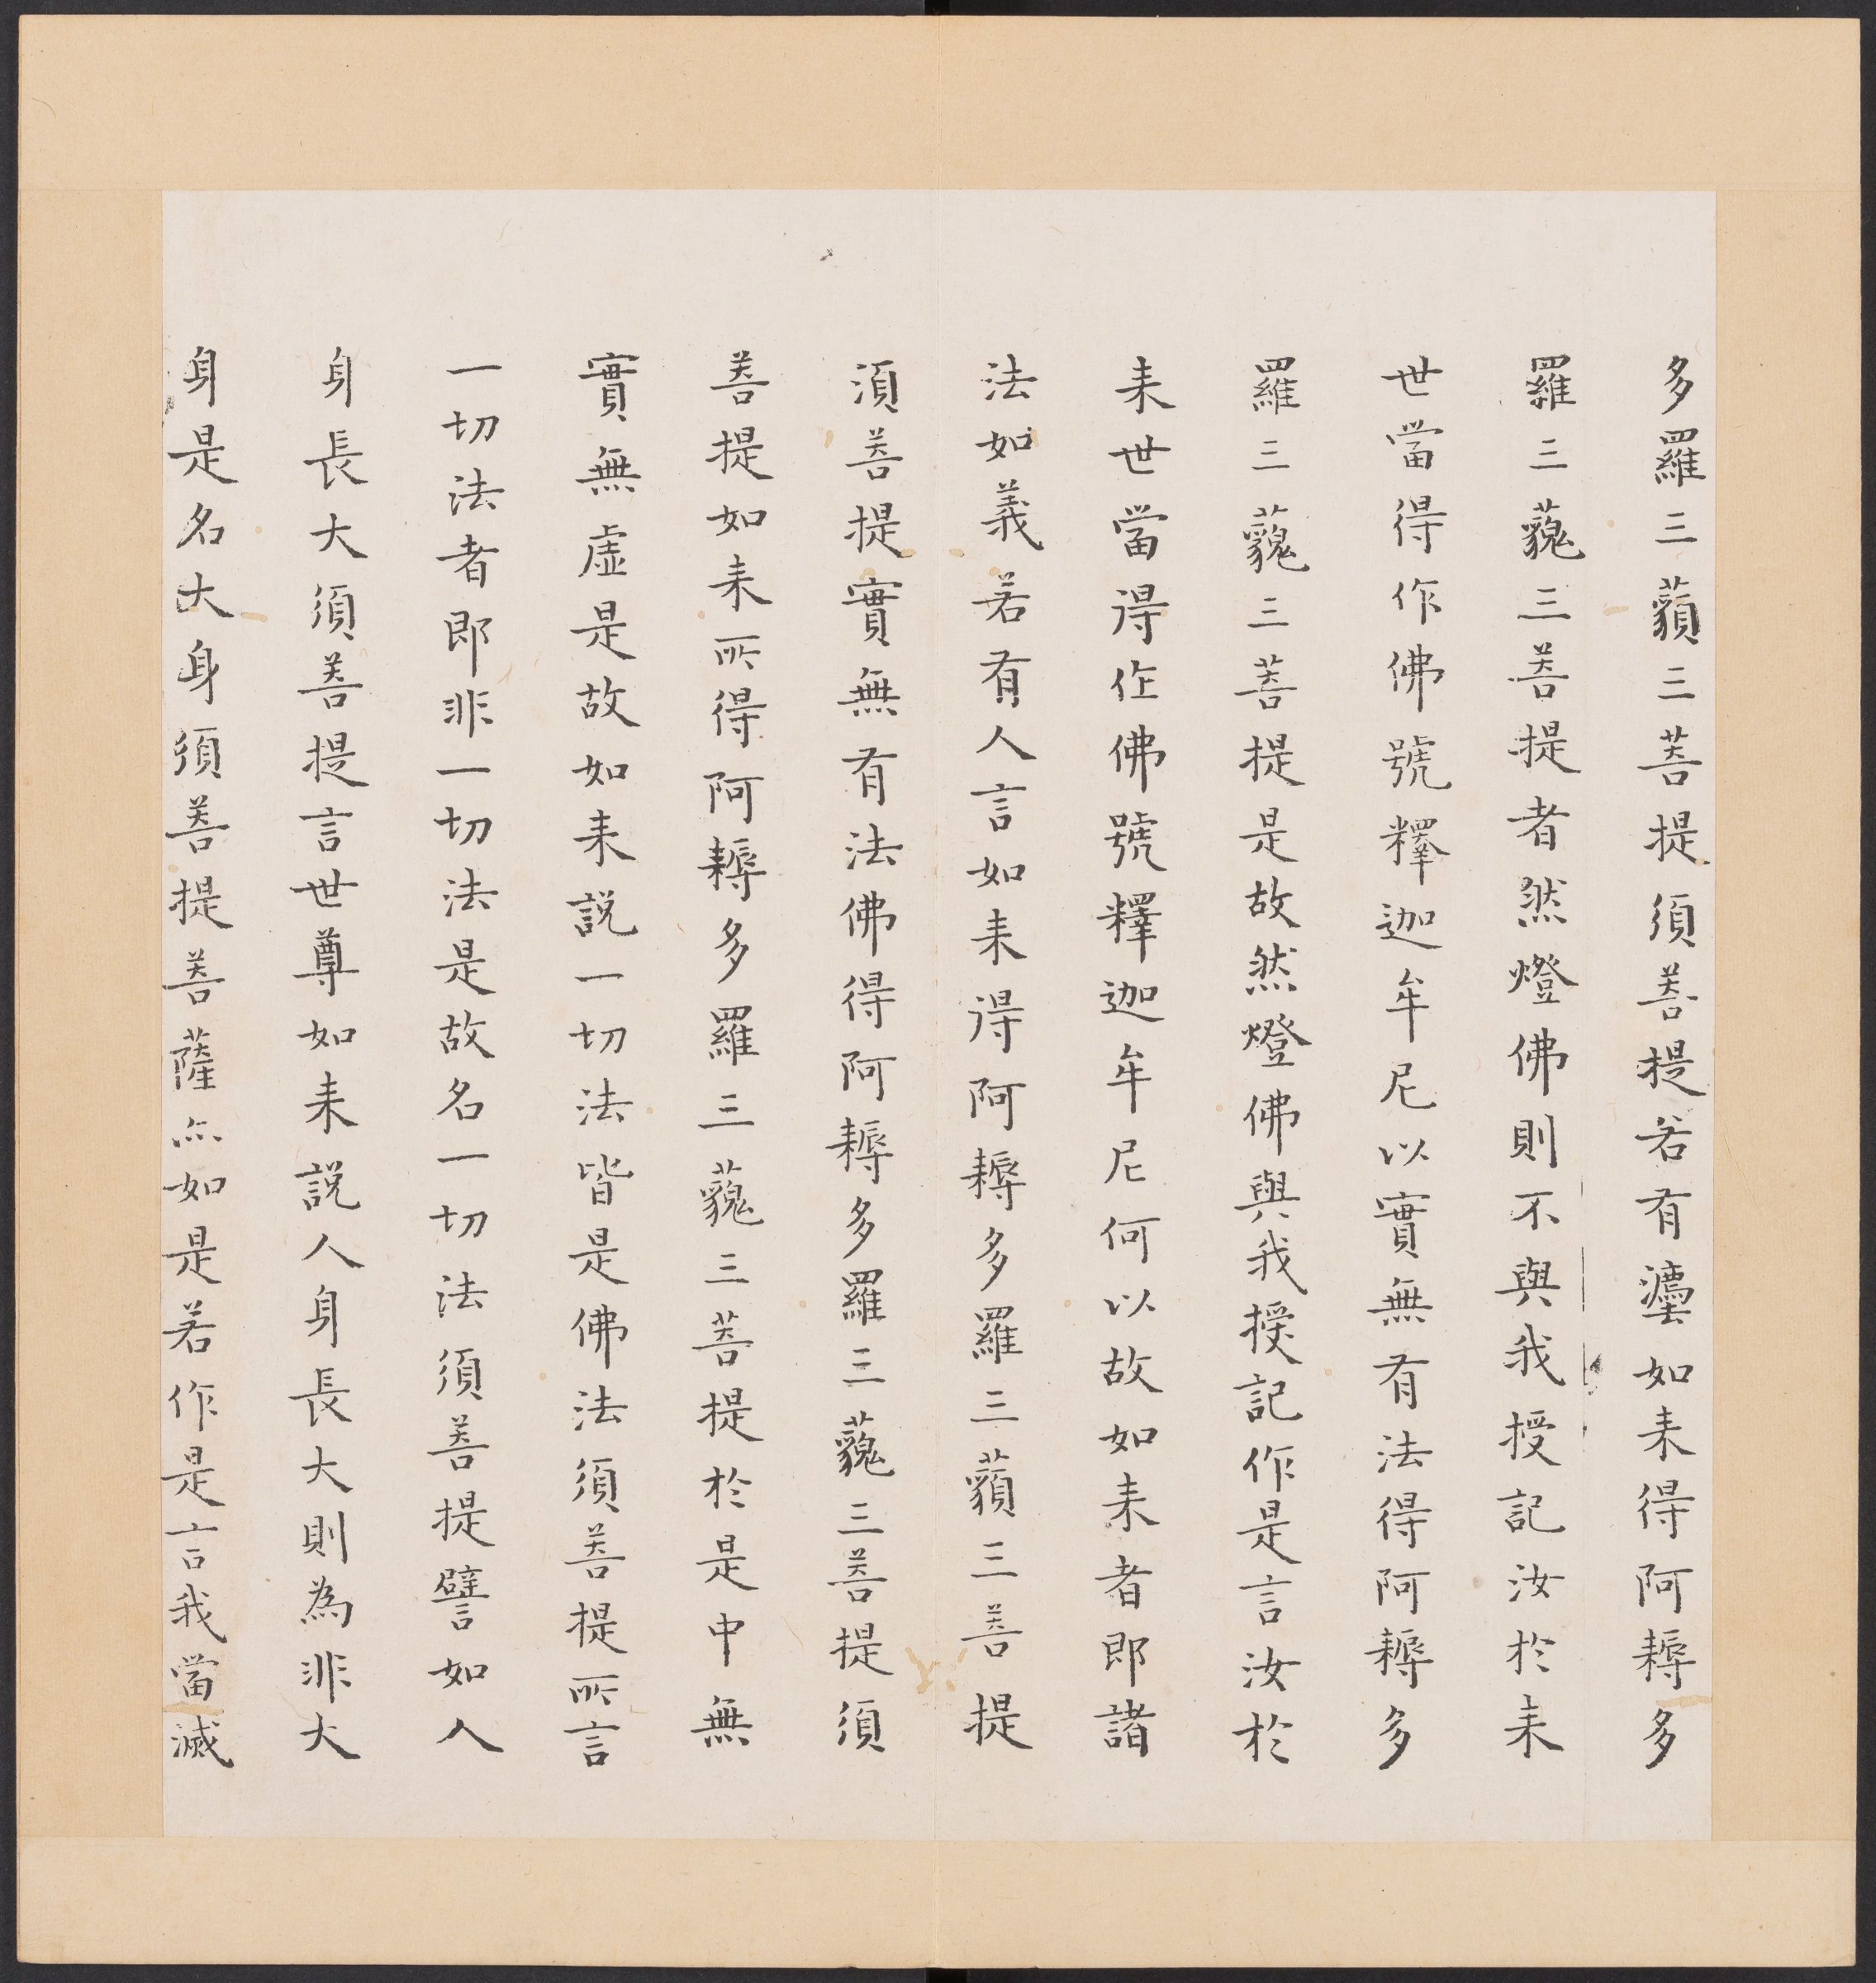 多羅三藐三菩提須菩提若有灋如来得阿耨多
羅三藐三菩提者然燈佛則不與我授記汝於来
世當得作佛號釋迦牟尼以實無有法得阿耨多
羅三藐三菩提是故然燈佛與我授記作是言汝於
来世當得作佛號釋迦牟尼何以故如来者即諸
法如義若有人言如来得阿耨多羅三藐三菩提
須菩提實無有法佛得阿耨多羅三藐三菩提須
菩提如来所得阿耨多羅三藐三菩提於是中無
實無虛是故如来說一切法皆是佛法須菩提所言
一切法者即非一切法是故名一切法須菩提譬如人
身長大須菩提言世尊如来說人身長大則為非大
身是名大身須菩提菩薩亦如是若作是言我當滅